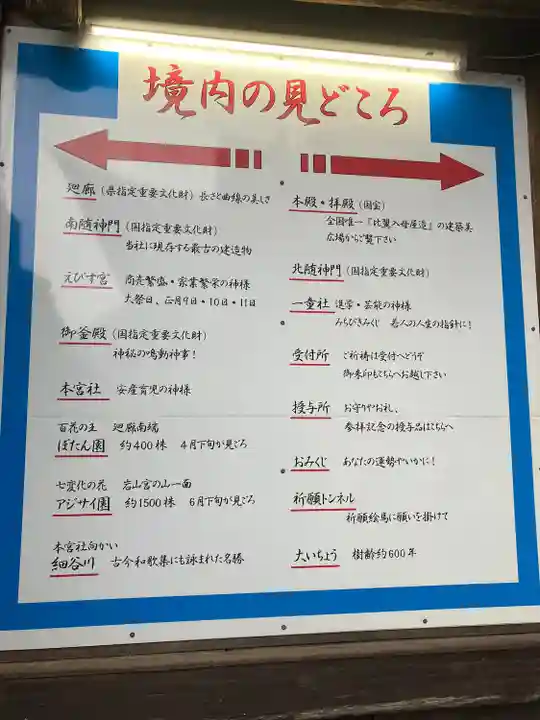 境内の見どころ
廻廊（県指定重要文化財）長さと曲線の美しさ
南随神門（国指定重要文化財）
当社に現存する最古の建造物
えびす宮 商売繁盛・家業繁栄の神様
大祭日、正月9日・10日・11日
御釜殿（国指定重要文化財）
神秘の鳴動神事！
本宮社 安産育児の神様
百花の王 廻廊南端
ぼたん園 約400株 4月下旬が見ごろ
七変化の花 岩山宮の山一面
アジサイ園 約1500株 6月下旬が見ごろ
本宮社向かい
細谷川 古今和歌集にも詠まれた名勝
本殿・拝殿（国宝）
全国唯一『比翼入母屋造』の建築美
広場からご覧下さい
北随神門（国指定重要文化財）
一童社 進学・芸能の神様
みちびきみくじ 若人の人生の指針に！
受付所 ご祈祷は受付へどうぞ
御朱印もこちらへお越し下さい
授与所 お守りやお札、
参拝記念の授与品はこちらへ
おみくじ あなたの運勢やいかに！
祈願トンネル
祈願絵馬に願いを掛けて
大いちょう 樹齢約600年